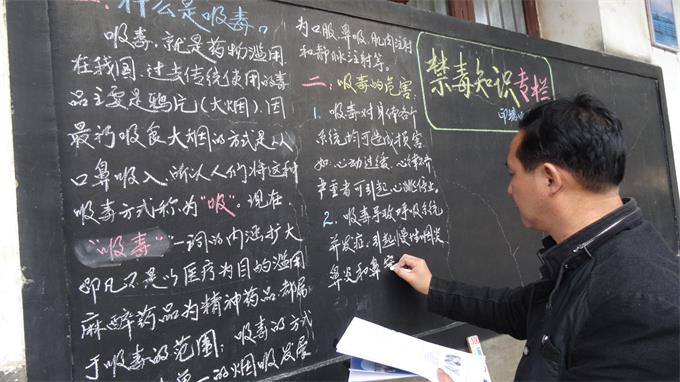 一、什么是吸毒。
吸毒，就是药物滥用
在我国，过去传统使用的毒
品主要是鸦片(大烟)因
最初吸食大烟的方式是从
口鼻吸入，所以人们将这种
吸毒方式称为"吸"。现在
"吸毒"一词的内涵扩大
即凡不是以医疗为目的滥用
麻醉药品与精神药品都属
于吸毒的范围；吸毒的方式
单一的烟吸发展
为口服、鼻吸、肌肉注射
和静脉注射等。
二：吸毒的危害
1、吸毒对身体各个
系统均可造成损害，
如：心动过缓、心律不齐
严重者可引起心跳停止。
2、吸毒导致呼吸系统
并发症，引起慢性咽炎
鼻炎和鼻窦
禁毒知识专栏